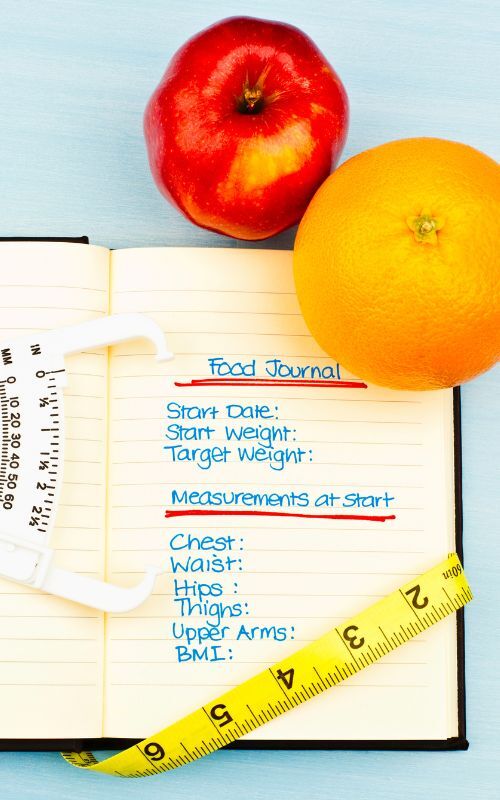 Food Journal
Start Date:
Start Weight:
Target Weight:
Measurements at Start
Chest:
Waist:
Hips :
Thighs:
Upper Arms:
BMI:
MM
IN
0
0
10
20
30
40
50
60
½
1
1½
2
2½
60in
2
3
4
5
6